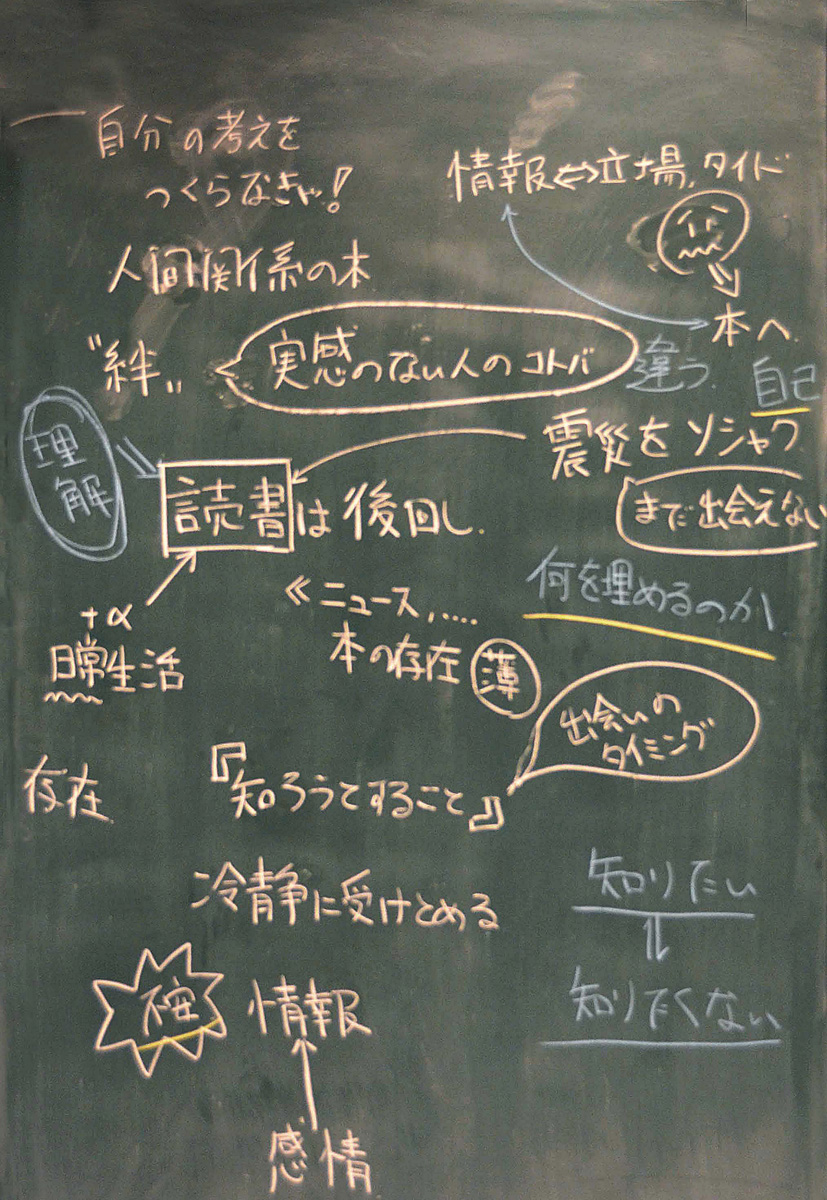 自分の考えを
つくらなきゃ!
情報⇔立場、タイド
人間関係の本
本へ
"絆"
実感のない人のコトバ
違う
自己
理解
震災をソシャク
まだ出会えない
読書は後回し.
何を埋めるのか
+α
日常生活
≪ニュース,....
本の存在 薄
出会いの
タイミング
存在
『知ろうとすること』
冷静に受けとめる
知りたい
⇅
知りたくない
不安
情報
↑
感情